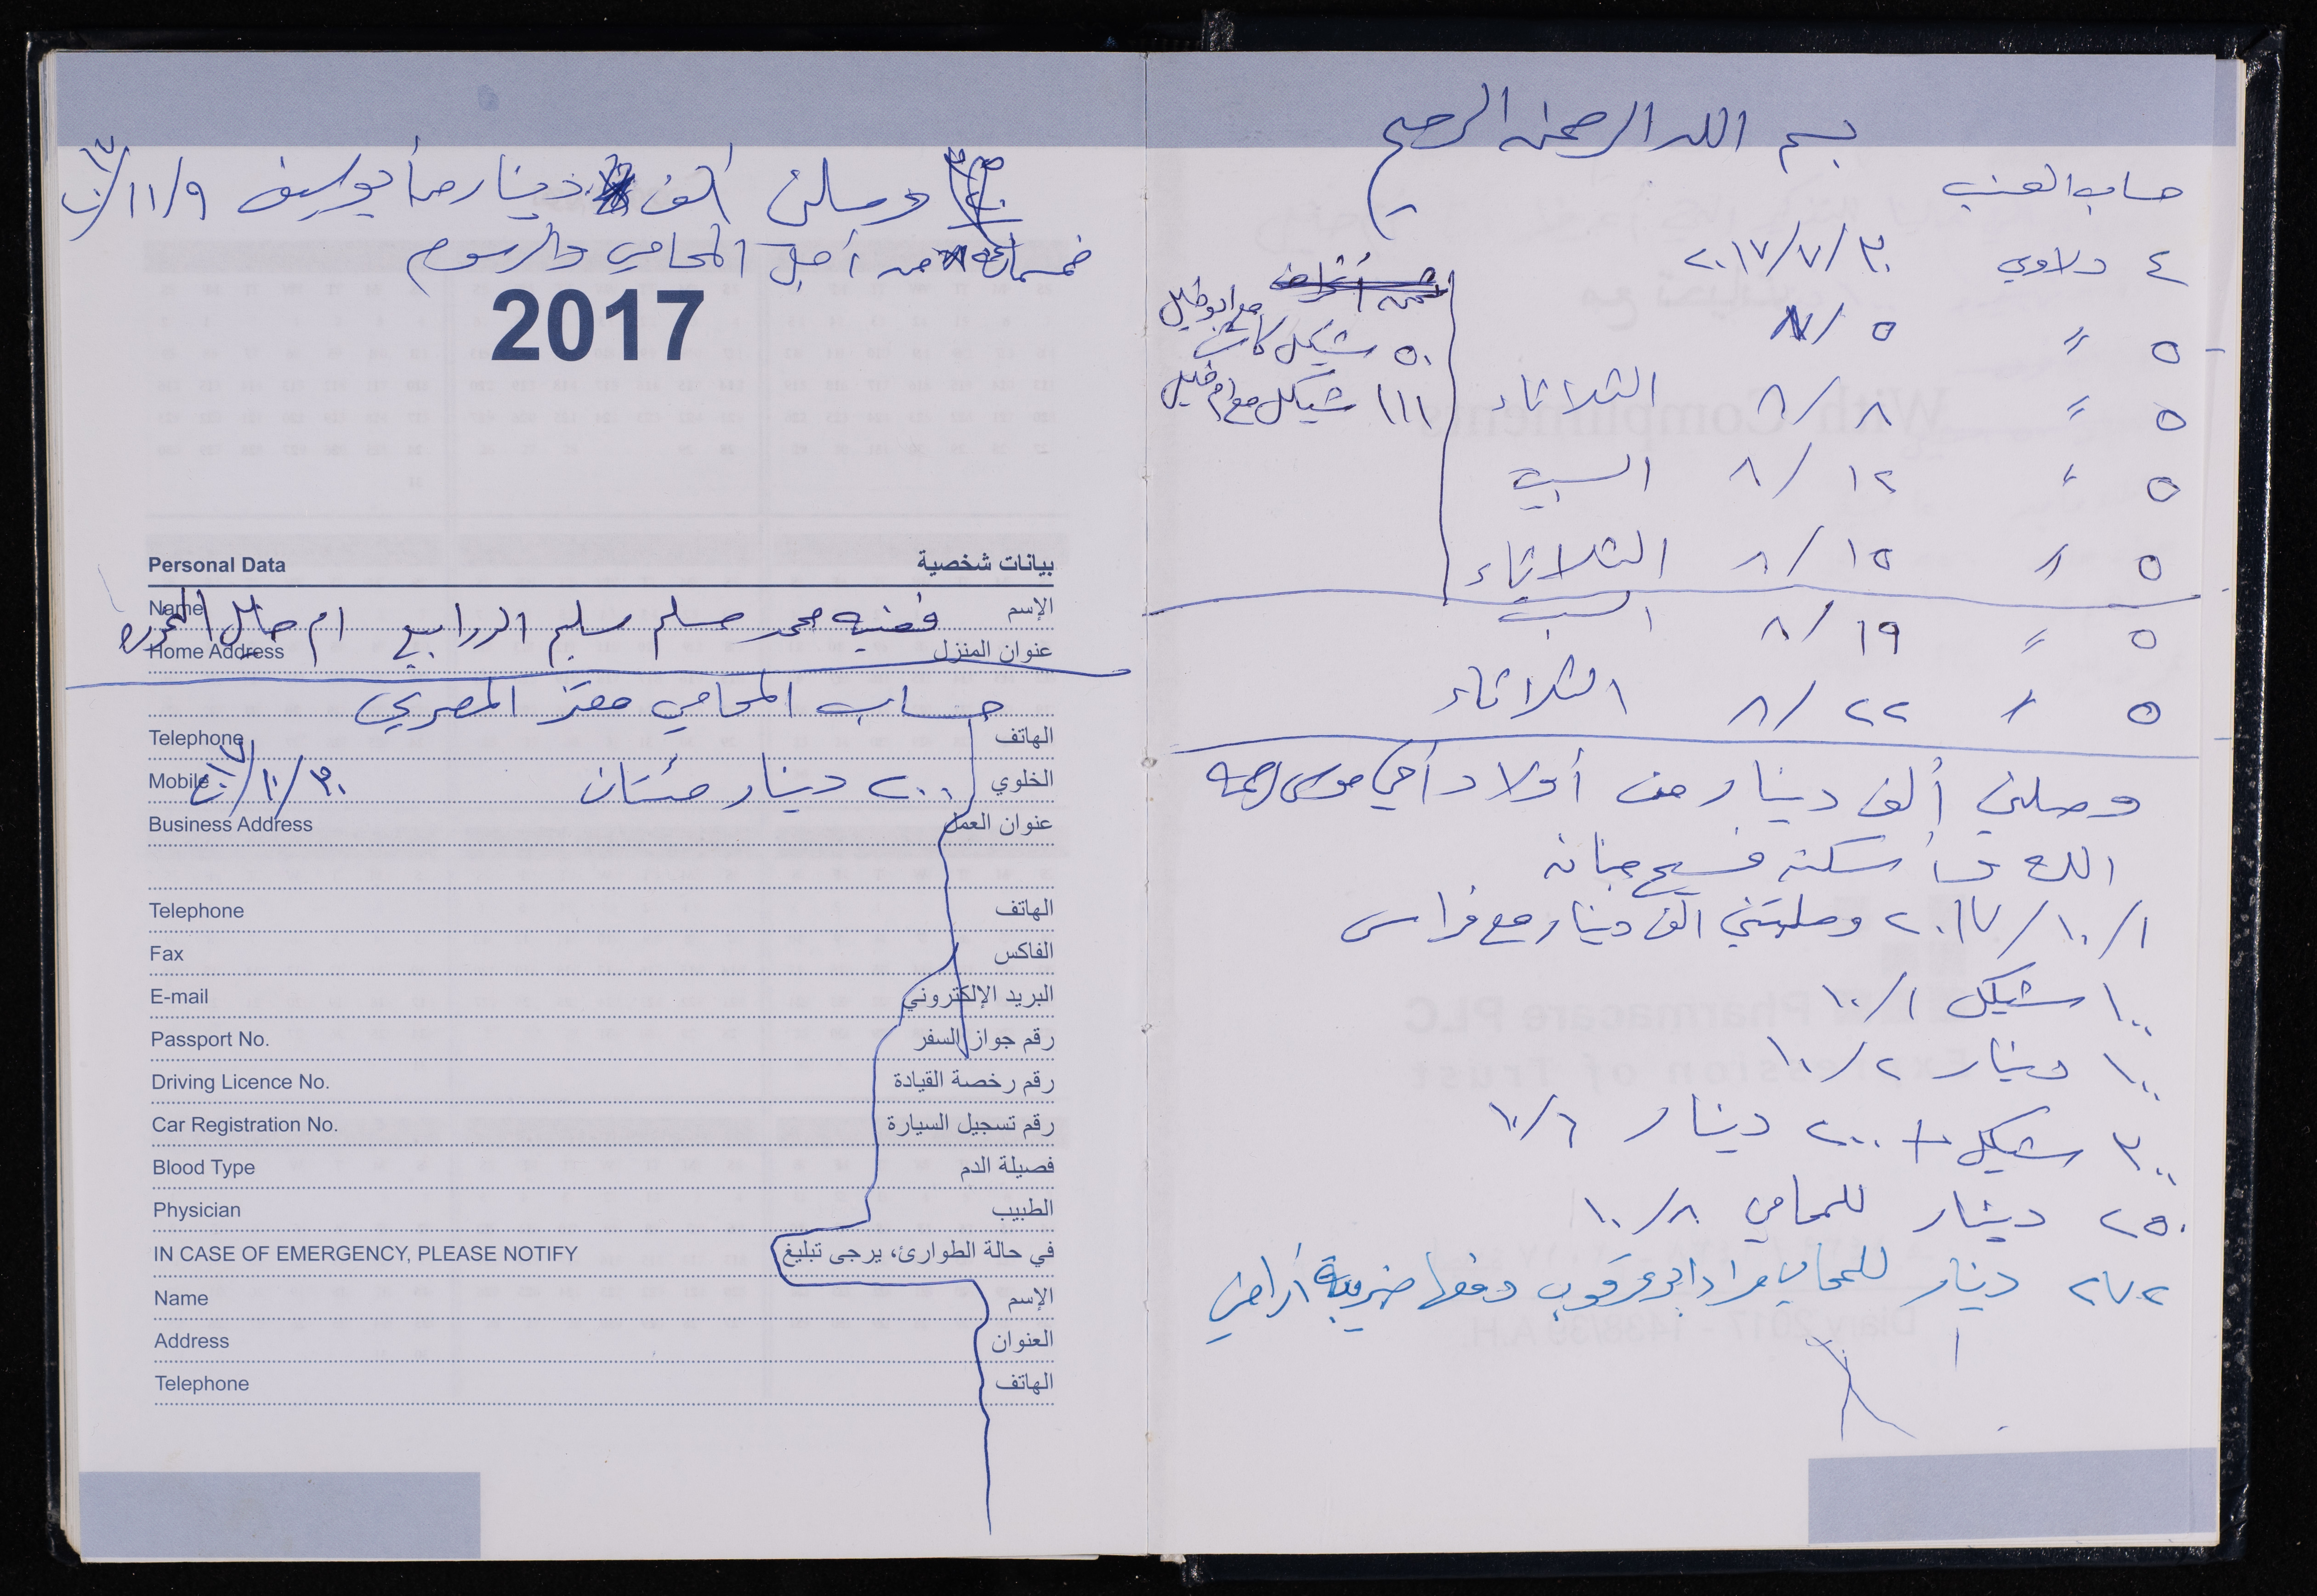 بسم الله الرحمن الرحيم
حساب العنب
٤ دلاوي ٢٠١٧/٧/٣٠
٥ " ٥/
٥ " ٨/٨ الثلاثاء
٥ " ٨/١٢ السبت
٥ " ٨/١٥ الثلاثاء
٥ " ٨/١٩ السبت
٥ " ٨/٢٢ الثلاثاء
مع ابو خليل
٥٠ شيكل كاش
١١١ شيكل مع ام خليل
وصلني ألف دينار من أولاد أخي موسى رحمه
الله و أسكنه فسيح جنانه
٢٠١٧/١٠/١ وصلتني ألف دينار مع فراس
١٠٠ شيكل ١٠/١
١٠٠ دينار ١٠/٢
٣٠٠ شيكل + ٢٠٠ دينار ١٠/٦
٢٥٠ دينار للمحامي ١٠/٨
٢٧٢ دينار للمحامي مراد ابو عرقوب دفعها ضريبة أراضي
وصلني ألف دينار من أبو يوسف ١١/٩/
خمسمائة من أجل المحامي والرسوم
2017
Personal Data بيانات شخصية
Name الإسم
فضيه محمد مسلم سليم الدرابيع ام
Home Address عنوان المنزل
حساب المحامي معتز المصري
Telephone الهاتف
Mobile الخلوي
٢٠٠ دينار مئتان ١٠/٣٠/
Business Address عنوان العمل
Telephone الهاتف
Fax الفاكس
E-mail البريد الإلكتروني
Passport No. رقم جواز السفر
Driving Licence No. رقم رخصة القيادة
Car Registration No. رقم تسجيل السيارة
Blood Type فصيلة الدم
Physician الطبيب
IN CASE OF EMERGENCY, PLEASE NOTIFY في حالة الطوارئ، يرجى تبليغ
Name الإسم
Address العنوان
Telephone الهاتف